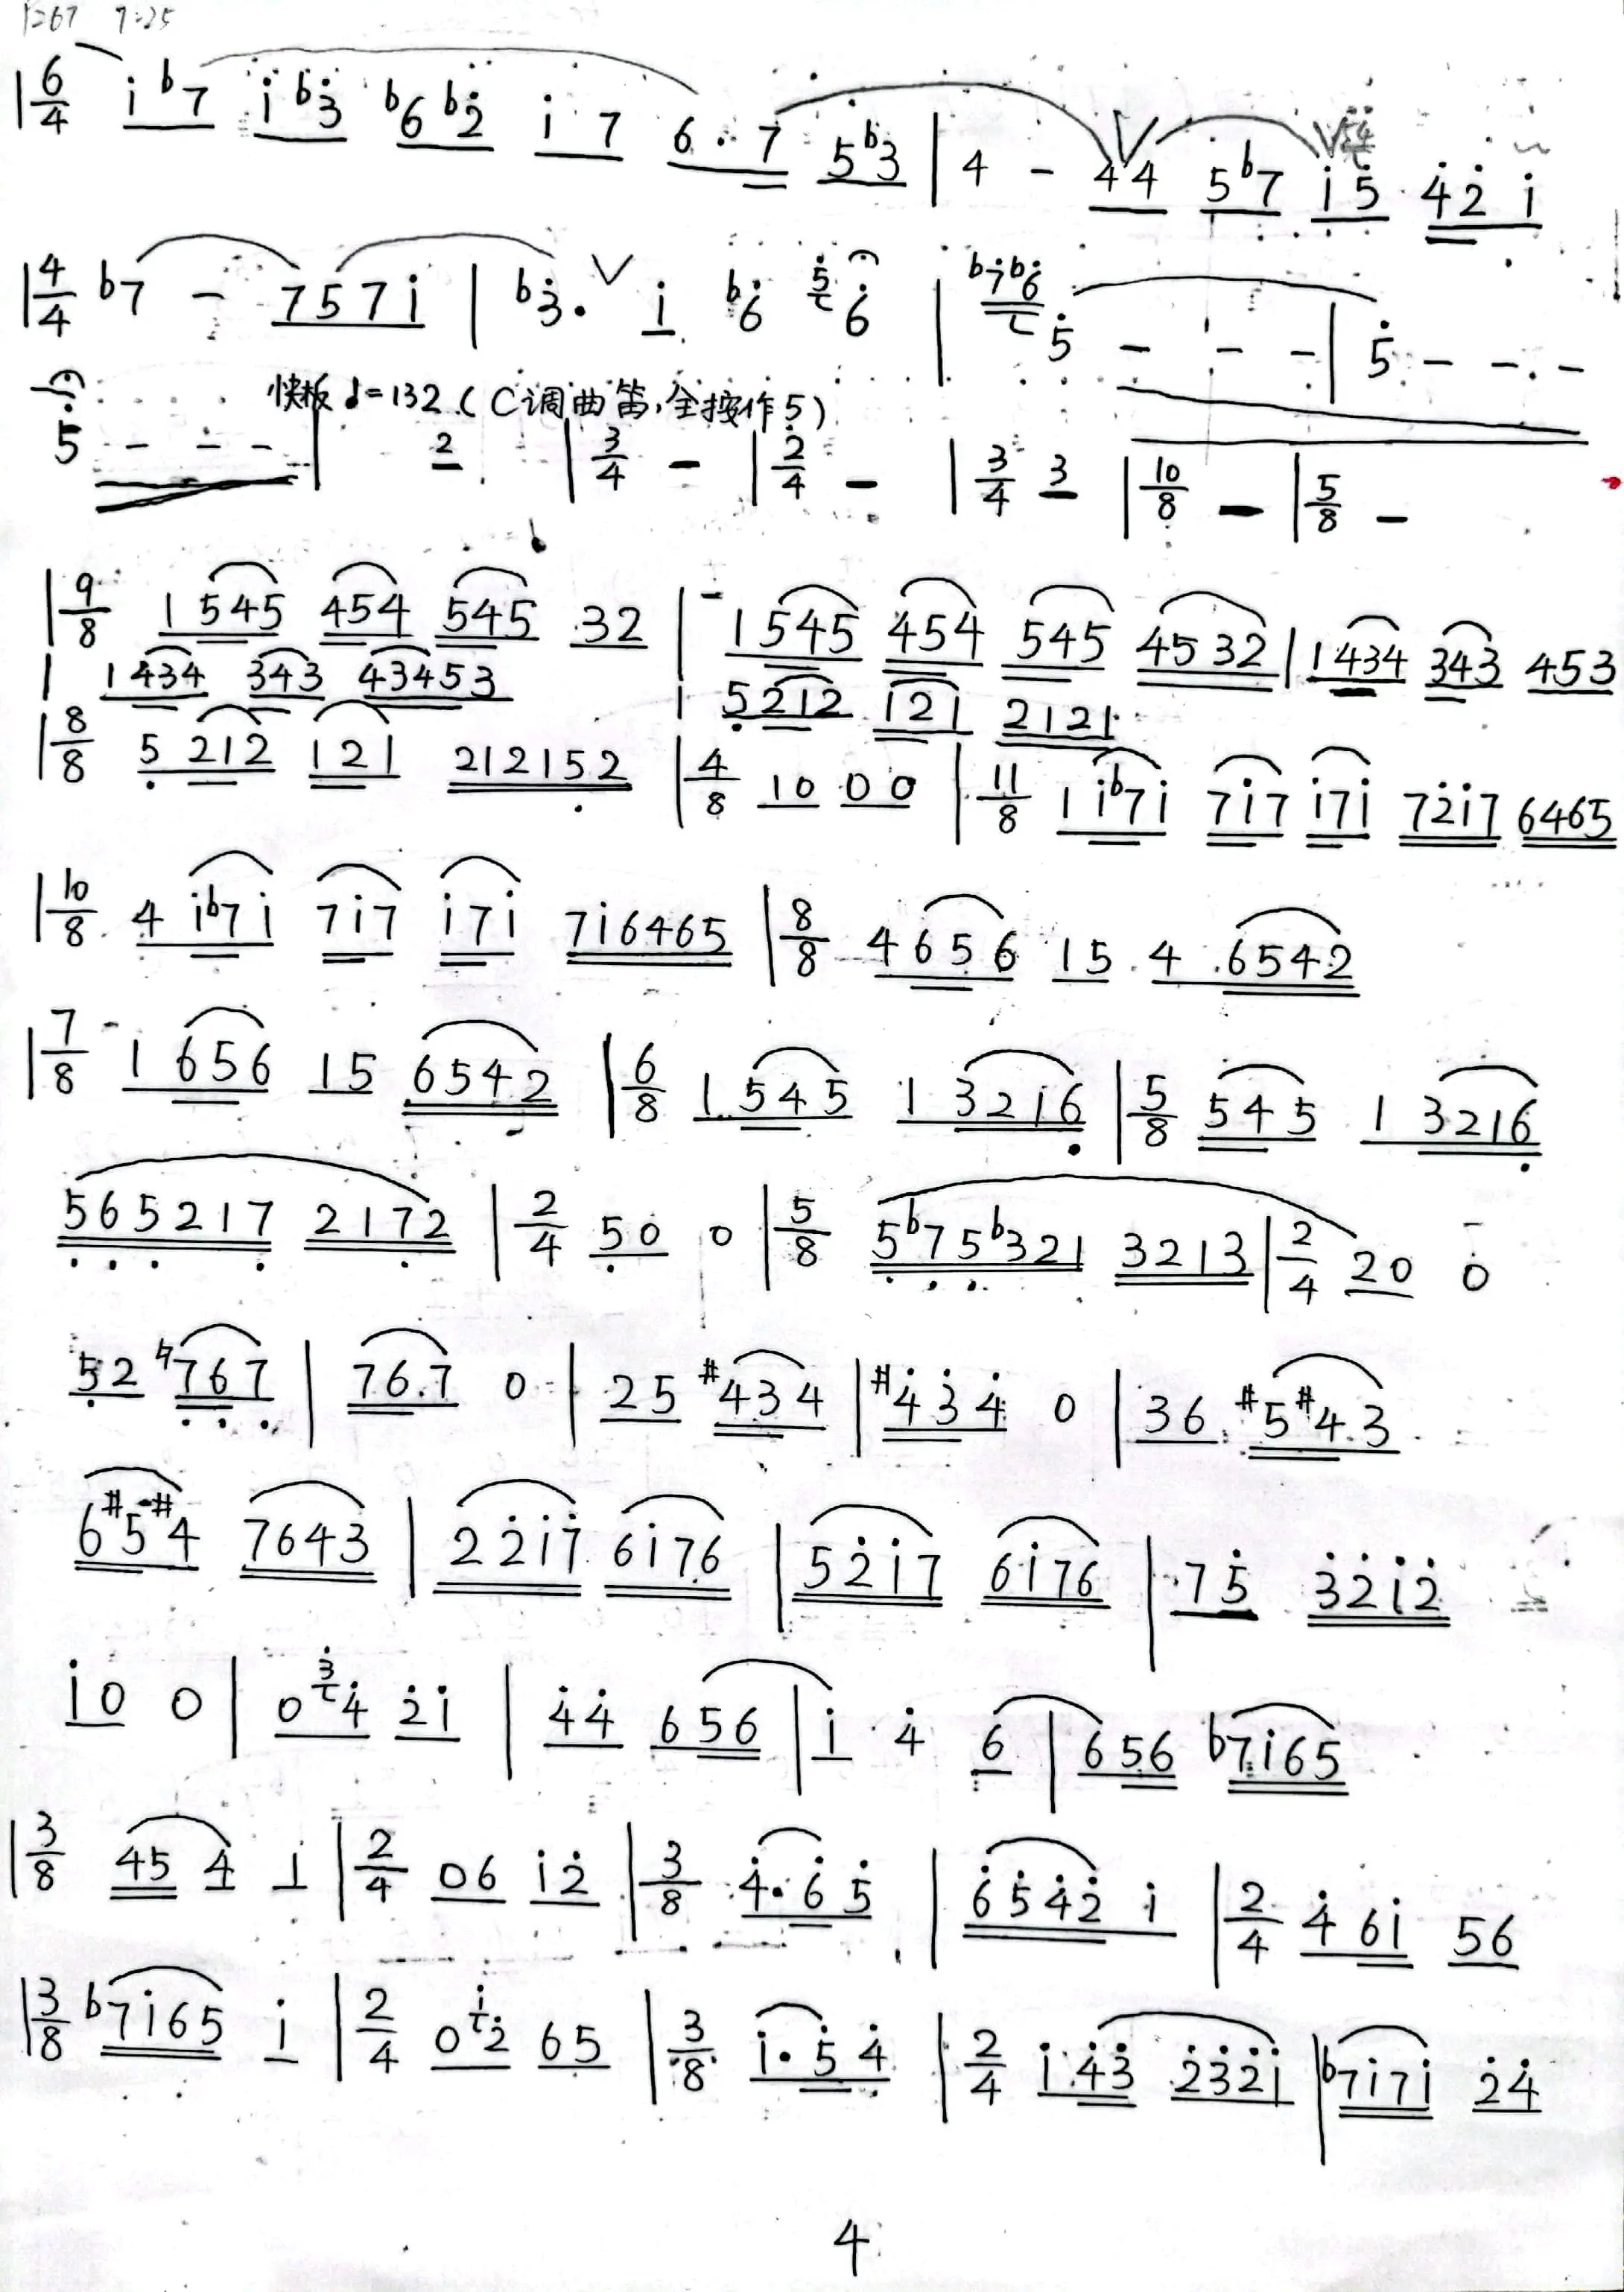 P267 7:25
|6/4 i̇ b7 i̇ b3̇ b6 b2̇ i̇ 7 6· 7 5 b3 | 4 - 4 4 5 b7 i̇ 5̇ 4̇ 2̇ i̇
|4/4 b7 - 7 5 7 i̇ | b3̇· V i̇ b6̇ 5̇ 6̇ | b7̇ b6̇ 5̇ - - - | 5̇ - - -
快板 ♩=132 (C调曲笛,全按作5)
5̇ - - - | 2 | 3/4 - | 2/4 - | 3/4 3 | 10/8 - | 5/8 -
|9/8 1 5 4 5 4 5 4 5 4 5 3 2 | 1 5 4 5 4 5 4 5 4 5 4 5 3 2 | 1 4 3 4 3 4 3 4 5 3
| 1 4 3 4 3 4 3 4 3 4 5 3 | 5̣ 2 1 2 1 2 1 2 1 2 1
|8/8 5̣ 2 1 2 1 2 1 2 1 2 1 5̣ 2 | 4/8 1 0 0 0 | 11/8 1 i̇ b7 i̇ 7 i̇ 7 i̇ 7 i̇ 7 2̇ i̇ 7 6 4 6 5
|10/8 4 i̇ b7 i̇ 7 i̇ 7 i̇ 7 i̇ 7 i̇ 6 4 6 5 | 8/8 4 6 5 6 1 5 4 6 5 4 2
|7/8 1 6 5 6 1 5 6 5 4 2 | 6/8 1 5 4 5 1 3 2 1 6̣ | 5/8 5 4 5 1 3 2 1 6̣
5̣ 6̣ 5̣ 2 1 7̣ 2 1 7̣ 2 | 2/4 5̣ 0 0 | 5/8 5̣ b7̣ 5̣ b3 2 1 3 2 1 3 | 2/4 2 0 0
5̣ 2 ♮7̣ 6̣ 7̣ | 7 6 7 0 | 2 5 #4 3 4 | #4̇ 3̇ 4̇ 0 | 3 6 #5 #4 3
6 #5 #4 7 6 4 3 | 2 2̇ i̇ 7 6 i̇ 7 6 | 5 2̇ i̇ 7 6 i̇ 7 6 | 7 5̇ 3̇ 2̇ i̇ 2̇
i̇ 0 0 | 0 3̇ 4̇ 2̇ i̇ | 4̇ 4̇ 6 5 6 | i̇ 4̇ 6 | 6 5 6 b7 i̇ 6 5
|3/8 4 5 4 1 | 2/4 0 6 i̇ 2̇ | 3/8 4̇· 6̇ 5̇ | 6̇ 5̇ 4̇ 2̇ i̇ | 2/4 4̇ 6 i̇ 5 6
|3/8 b7 i̇ 6 5 i̇ | 2/4 0 i̇ 2̇ 6 5 | 3/8 i̇· 5̇ 4̇ | 2/4 i̇ 4̇ 3̇ 2̇ 3̇ 2̇ i̇ | b7 i̇ 7 i̇ 2̇ 4̇
4